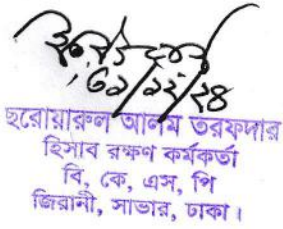 ০১/১২/২৪
ছরোয়ারুল আলম তরফদার
হিসাব রক্ষণ কর্মকর্তা
বি, কে, এস, পি
জিরানী, সাভার, ঢাকা।